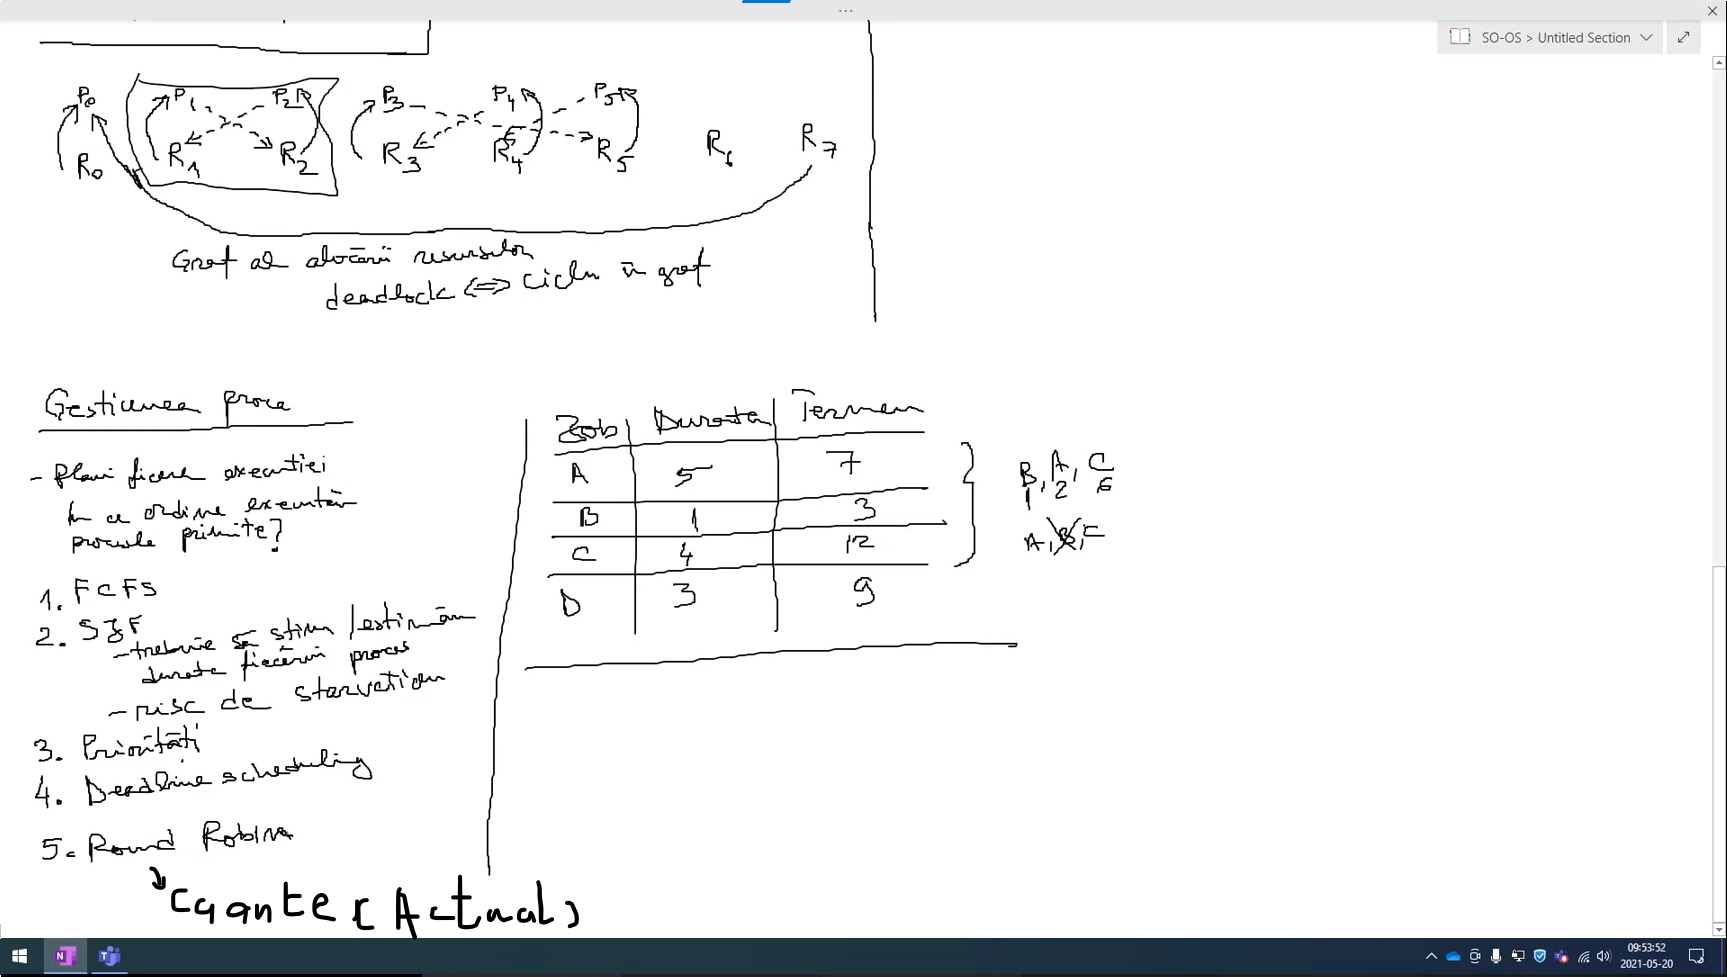 SO-OS > Untitled Section
P0 P1 P2 P3 P4 P5
R0 R1 R2 R3 R4 R5 R6 R7
Graf al alocării resurselor
deadlock <=> ciclu în graf
Gestiunea proce
- Planificarea execuției
În ce ordine executăm
procesele primite?
1. FCFS
2. SJF
- trebuie să știm / estimăm
durata fiecărui proces
- risc de starvation
3. Priorități
4. Deadline scheduling
5. Round Robin
Cuante (Actual)
Job Durata Termen
A 5 7
B 1 3
C 4 12
D 3 9
B, A, C
1 2 6
A, B, C
09:53:52
2021-05-20